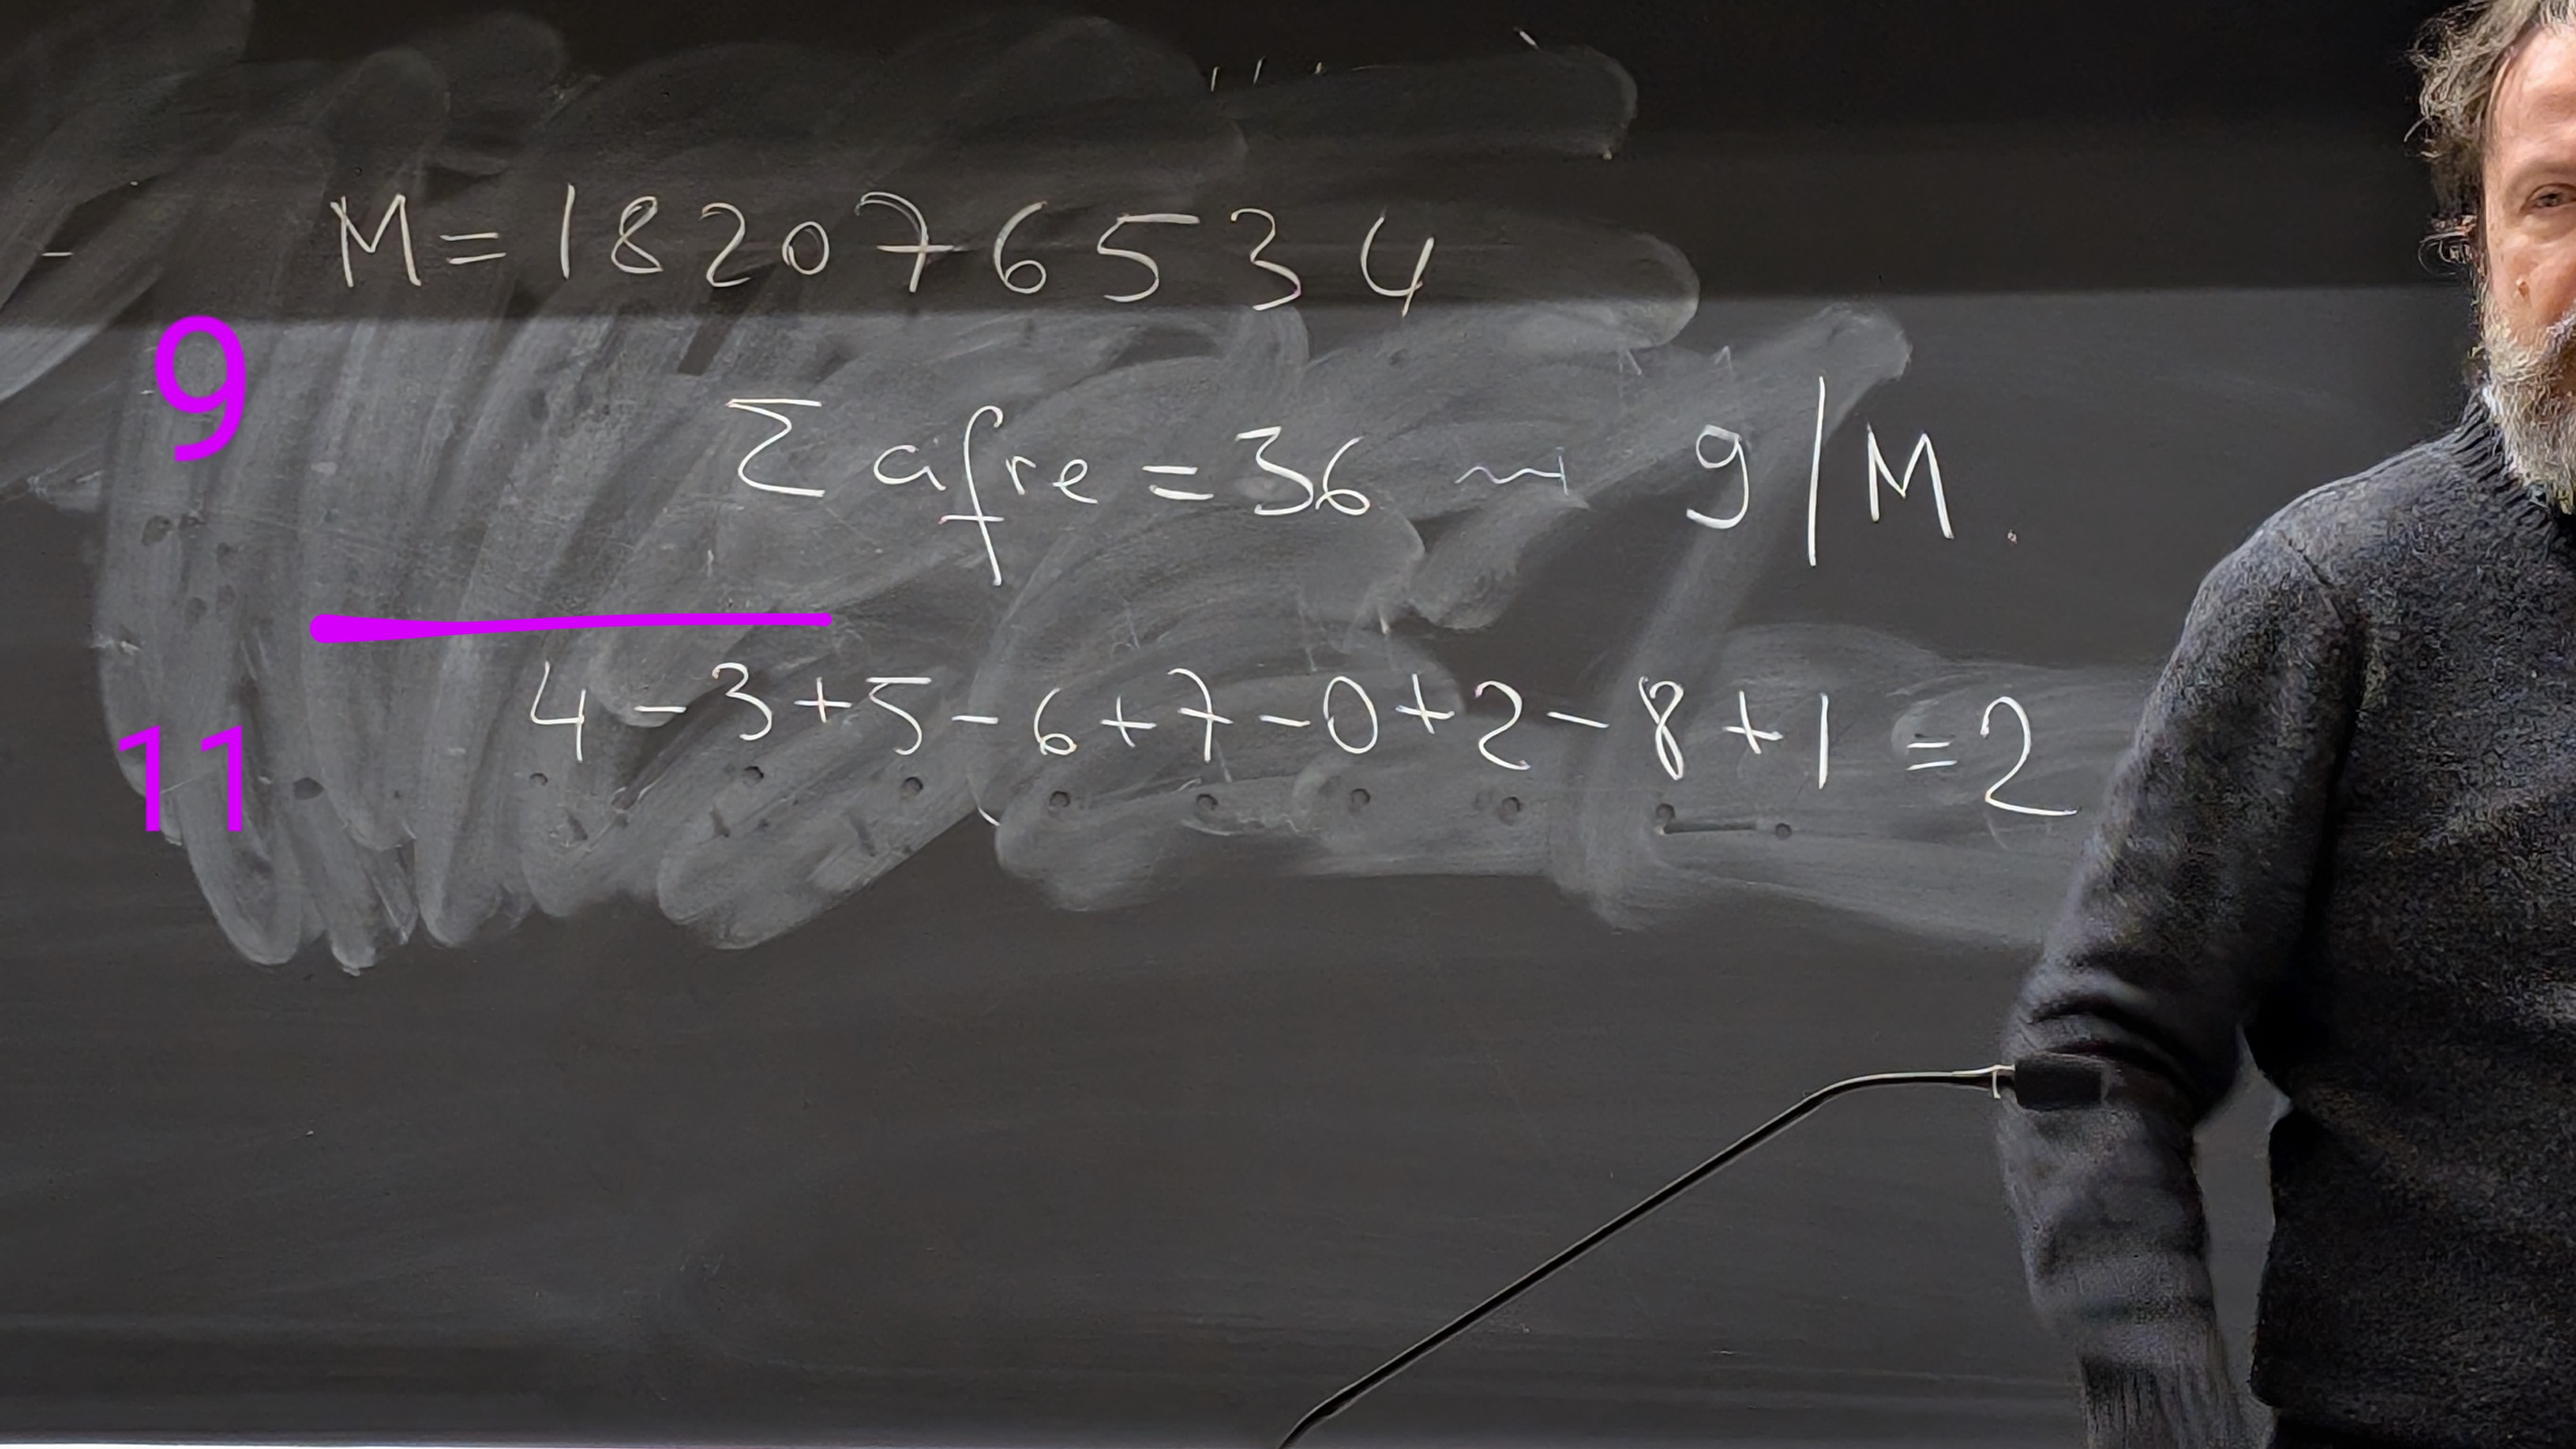 M=182076534
9
Σ cifre = 36 ⇝ 9 | M.
11
4-3+5-6+7-0+2-8+1 =2